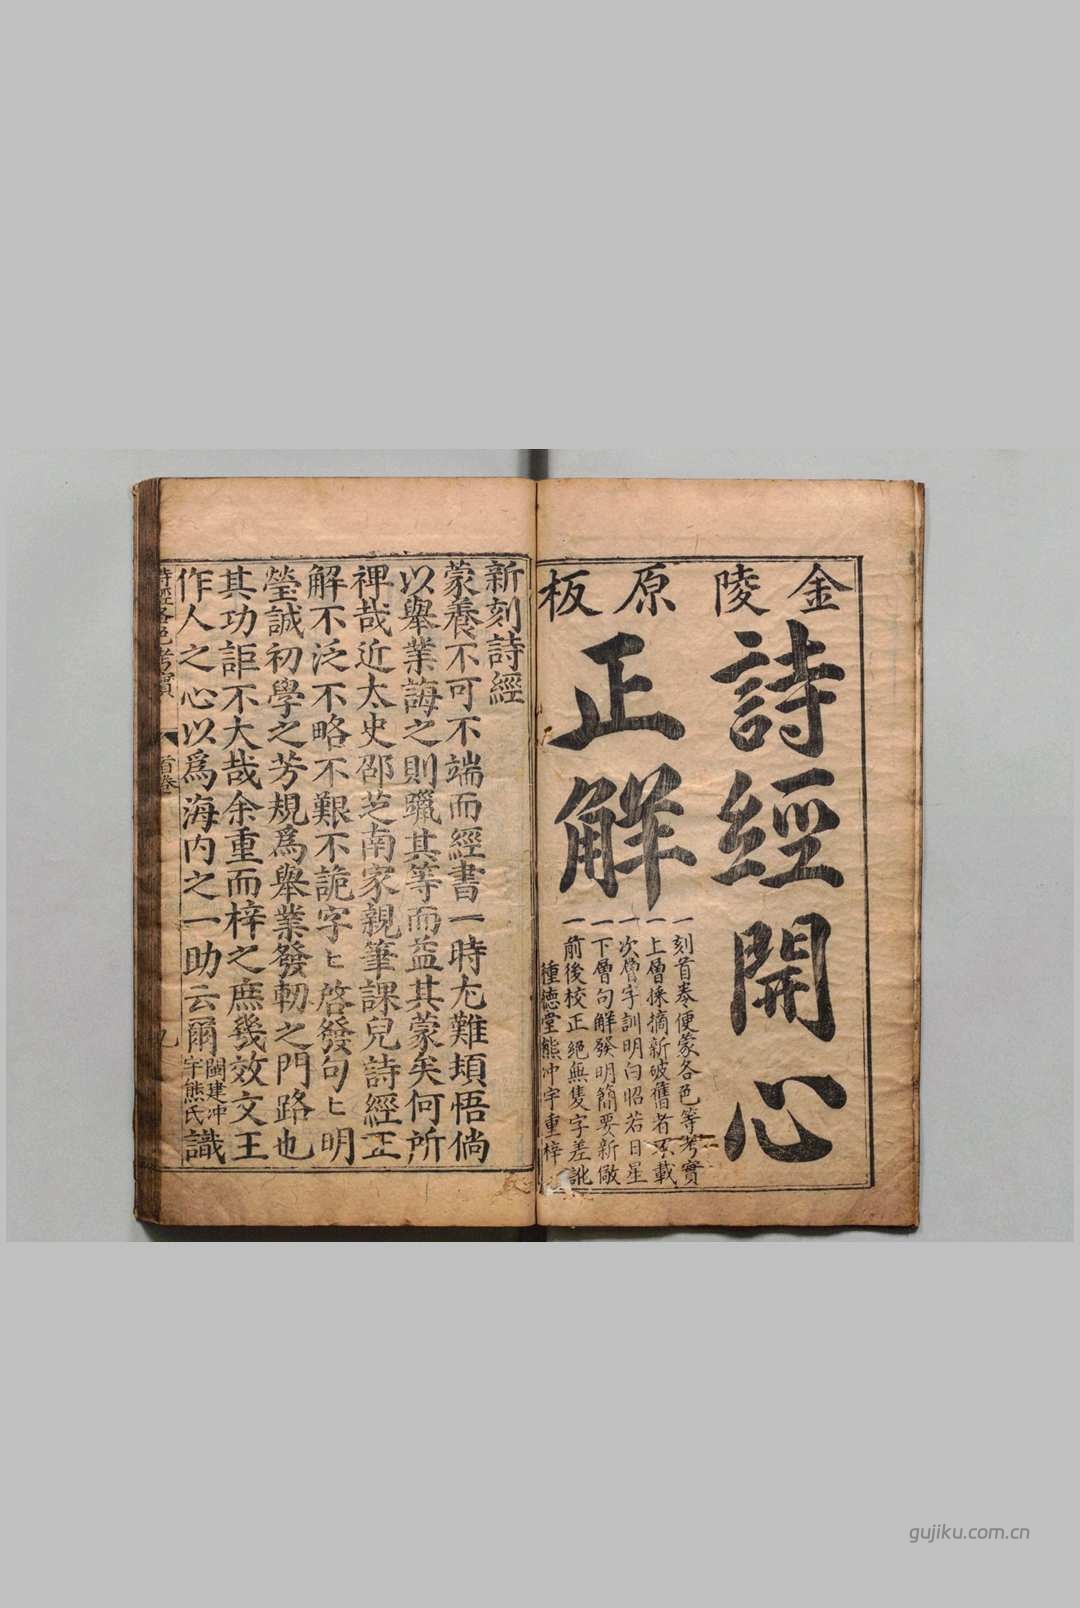 金陵原板
詩經開心
正解
一刻首卷便蒙各色等考實
一上層採摘新破舊者不載
一次層字訓明白昭若日星
一下層句解發明簡要新儆
一前後校正絕無隻字差訛
種德堂熊冲宇重梓
新刻詩經
蒙養不可不端而經書一時尢難頓悟倘
以舉業誨之則躐其等而益其蒙矣何所
裨哉近太史邵芝南家親筆課兒詩經正
解不泛不略不艱不詭字〻啓發句〻明
瑩誠初學之芳規爲舉業發軔之門路也
其功詎不大哉余重而梓之庶幾效文王
作人之心以爲海內之一助云爾閩建冲宇熊氏識
詩經各色考實 首卷
gujiku.com.cn